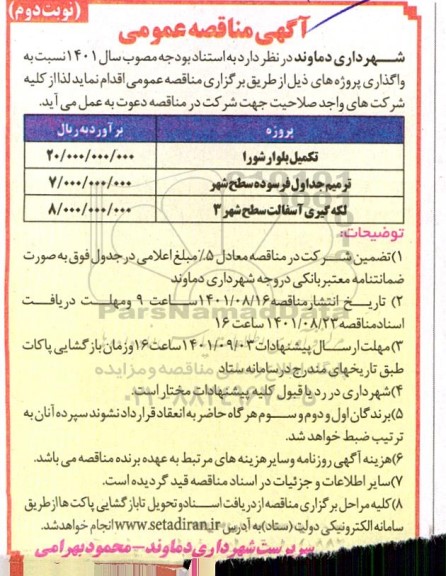 (نوبت دوم)
آگهی مناقصه عمومی
شهرداری دماوند در نظر دارد به استناد بودجه مصوب سال ۱۴۰۱ نسبت به
واگذاری پروژه های ذیل از طریق برگزاری مناقصه عمومی اقدام نماید لذا از کلیه
شرکت های واجد صلاحیت جهت شرکت در مناقصه دعوت به عمل می آید.
پروژه برآورد به ریال
تکمیل بلوار شورا ۲۰/۰۰۰/۰۰۰/۰۰۰
ترمیم جداول فرسوده سطح شهر ۷/۰۰۰/۰۰۰/۰۰۰
لکه گیری آسفالت سطح شهر ۳ ۸/۰۰۰/۰۰۰/۰۰۰
توضیحات:
۱)تضمین شرکت در مناقصه معادل ۵٪ مبلغ اعلامی در جدول فوق به صورت
ضمانتنامه معتبر بانکی در وجه شهرداری دماوند
۲) تاریخ انتشار مناقصه ۱۴۰۱/۰۸/۱۶ ساعت ۹ ومهلت دریافت
اسناد مناقصه ۱۴۰۱/۰۸/۲۳ ساعت ۱۶
ParsNamadData
۳)مهلت ارسال پیشنهادات ۱۴۰۱/۰۹/۰۳ ساعت ۱۶ وزمان بازگشایی پاکات
طبق تاریخهای مندرج در سامانه ستاد
۴)شهرداری در رد یا قبول کلیه پیشنهادات مختار است.
۵)برندگان اول و دوم و سوم هرگاه حاضر به انعقاد قرارداد نشوند سپرده آنان به
ترتیب ضبط خواهد شد.
۶)هزینه آگهی روزنامه وسایر هزینه های مرتبط به عهده برنده مناقصه می باشد.
۷)سایر اطلاعات و جزئیات در اسناد مناقصه قید گردیده است.
۸)کلیه مراحل برگزاری مناقصه از دریافت اسناد و تحویل تا بازگشایی پاکت ها از طریق
سامانه الکترونیکی دولت (ستاد) به آدرس www.setadiran.ir انجام خواهد شد.
سرپرست شهرداری دماوند – محمود بهرامی